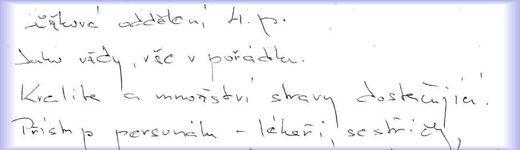 Lůžková oddělení 4.p.
Jako vždy, vše v pořádku.
Kvalita a množství stravy dostačující.
Přístup personálu - lékaři, sestřičky,